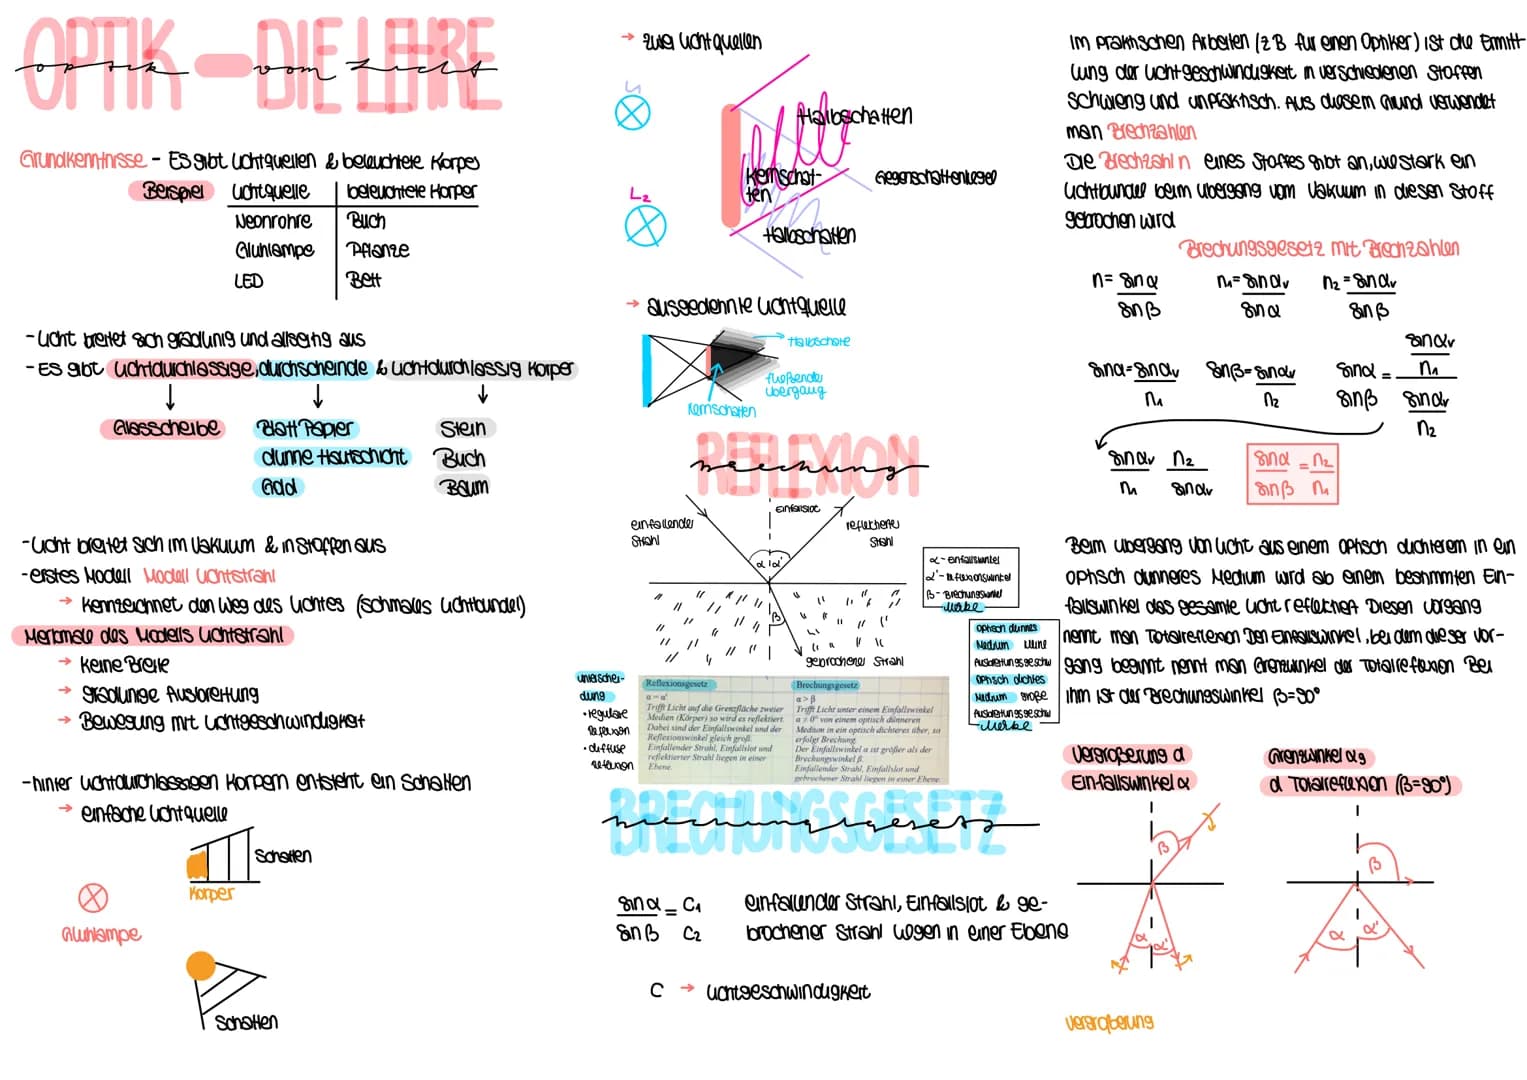 OPTIK - DIE LEHRE
optik vom Licht
Grundkenntnisse - Es gibt Lichtquellen & beleuchtete Körper
Beispiel
Lichtquelle
beleuchtete Körper
Neonröhre
Buch
Glühlampe
Pflanze
LED
Bett
- Licht breitet sich gradlinig und allseitig aus
- Es gibt Lichtdurchlässige, durchscheinde & Lichtdurchlässig Körper
Glasscheibe
Blatt Papier
Stein
dünne Hautschicht
Buch
Gold
Baum
- Licht breitet sich im Vakuum & in Stoffen aus
- erstes Modell Modell Lichtstrahl
→ kennzeichnet den Weg des Lichtes (schmales Lichtbündel)
Merkmale des Modells Lichtstrahl
→ keine Breite
→ gradlinige Ausbreitung
→ Bewegung mit Lichtgeschwindigkeit
- hinter Lichtdurchlässigen Körpern entsteht ein Schatten
→ einfache Lichtquelle
Schatten
Körper
Glühlampe
Schatten
→ zwei Lichtquellen
L1
Halbschatten
Kernschat-
ten
L2
Halbschatten
→ ausgedehnte Lichtquelle
Halbschatte
fließender
Übergang
Kernschatten
REFLEXION
brechung
einfallender
Strahl
Einfallslot
reflektierter
Strahl
α α'
β
gebrochener Strahl
α - Einfallswinkel
α' - Reflexionswinkel
β - Brechungswinkel
Merke
optisch dünnes
Medium kleine
Ausbreitungsgeschw
optisch dichtes
Medium große
Ausbreitungsgeschw
Merke
Unterschei-
dung
• reguläre
Reflexion
• diffuse
Reflexion
Reflexionsgesetz
α = α'
Trifft Licht auf die Grenzfläche zweier
Medien (Körper) so wird es reflektiert.
Dabei sind der Einfallswinkel und der
Reflexionswinkel gleich groß.
Einfallender Strahl, Einfallslot und
reflektierter Strahl liegen in einer
Ebene.
Brechungsgesetz
α > β
Trifft Licht unter einem Einfallswinkel
α ≠ 0° von einem optisch dünneren
Medium in ein optisch dichteres über, so
erfolgt Brechung.
Der Einfallswinkel α ist größer als der
Brechungswinkel β.
Einfallender Strahl, Einfallslot und
gebrochener Strahl liegen in einer Ebene.
BRECHUNGSGESETZ
brechungsgesetz
sin α = C1
sin β C2
einfallender Strahl, Einfallslot & ge-
brochener Strahl liegen in einer Ebene
C → Lichtgeschwindigkeit
Im praktischen Arbeiten (z B für einen Optiker) ist die Ermitt
lung der Lichtgeschwindigkeit in verschiedenen Stoffen
schwierig und unpraktisch. Aus diesem Grund verwendet
man Brechzahlen
Die Brechzahl n eines Stoffes gibt an, wie stark ein
Lichtbündel beim Übergang vom Vakuum in diesen Stoff
gebrochen wird
Brechungsgesetz mit Brechzahlen
n = sin α n1 = sin αv n2 = sin αv
sin β sin α sin β
sin α = sin αv sin β = sin αv sin α = sin αv
n1 n2 sin β n1
sin αv
n2
sin αv n2
n1 sin αv
sin α = n2
sin β n1
Beim Übergang von Licht aus einem optisch dichterem in ein
optisch dünneres Medium wird ab einem bestimmten Ein-
fallswinkel das gesamte Licht reflektiert Diesen Vorgang
nennt man Totalreflexion Den Einfallswinkel, bei dem dieser Vor-
gang beginnt nennt man Grenzwinkel der Totalreflexion Bei
ihm ist der Brechungswinkel β=90°
Vergrößerung d
Einfallswinkel α
Grenzwinkel αg
d Totalreflexion (β=90°)
β
α α'
β
α α'
Vergrößerung